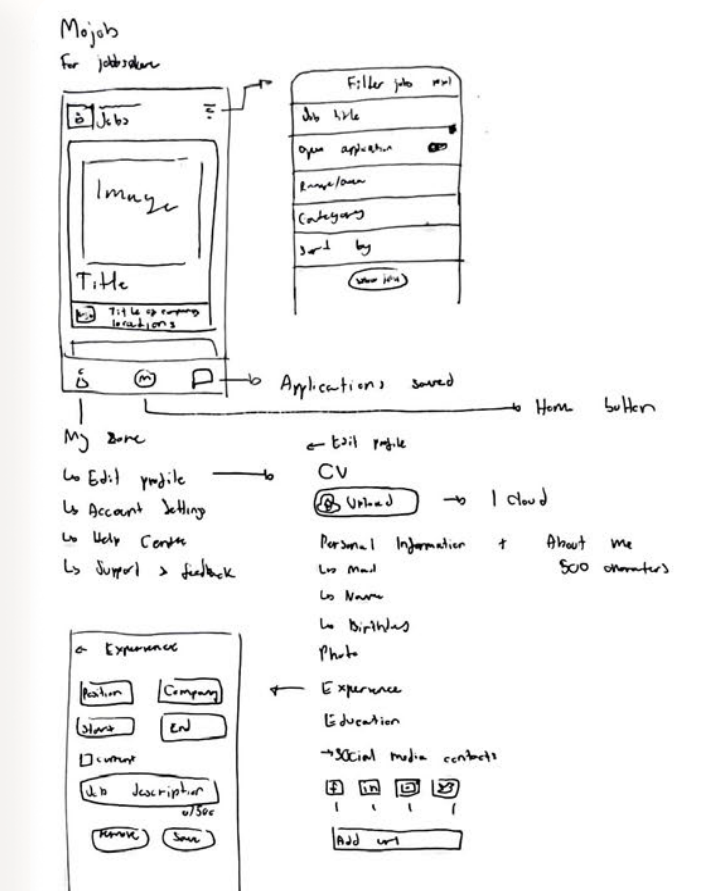 Mojob
For jobbsøkere
Jobs
Image
Title
Title of company
locations
Filter job
Job title
Open application
Range/area
Category
Sort by
M
Applications saved
Home button
My zone
Edit profile
Account Setting
Help Centre
Support & feedback
Edit profile
CV
Upload
I Cloud
Personal Information + About me
500 characters
Mail
Name
Birthday
Photo
Experience
Education
Social media contacts
f in
Add url
Experience
Position Company
Start End
current
Job description
0/500
remove Save